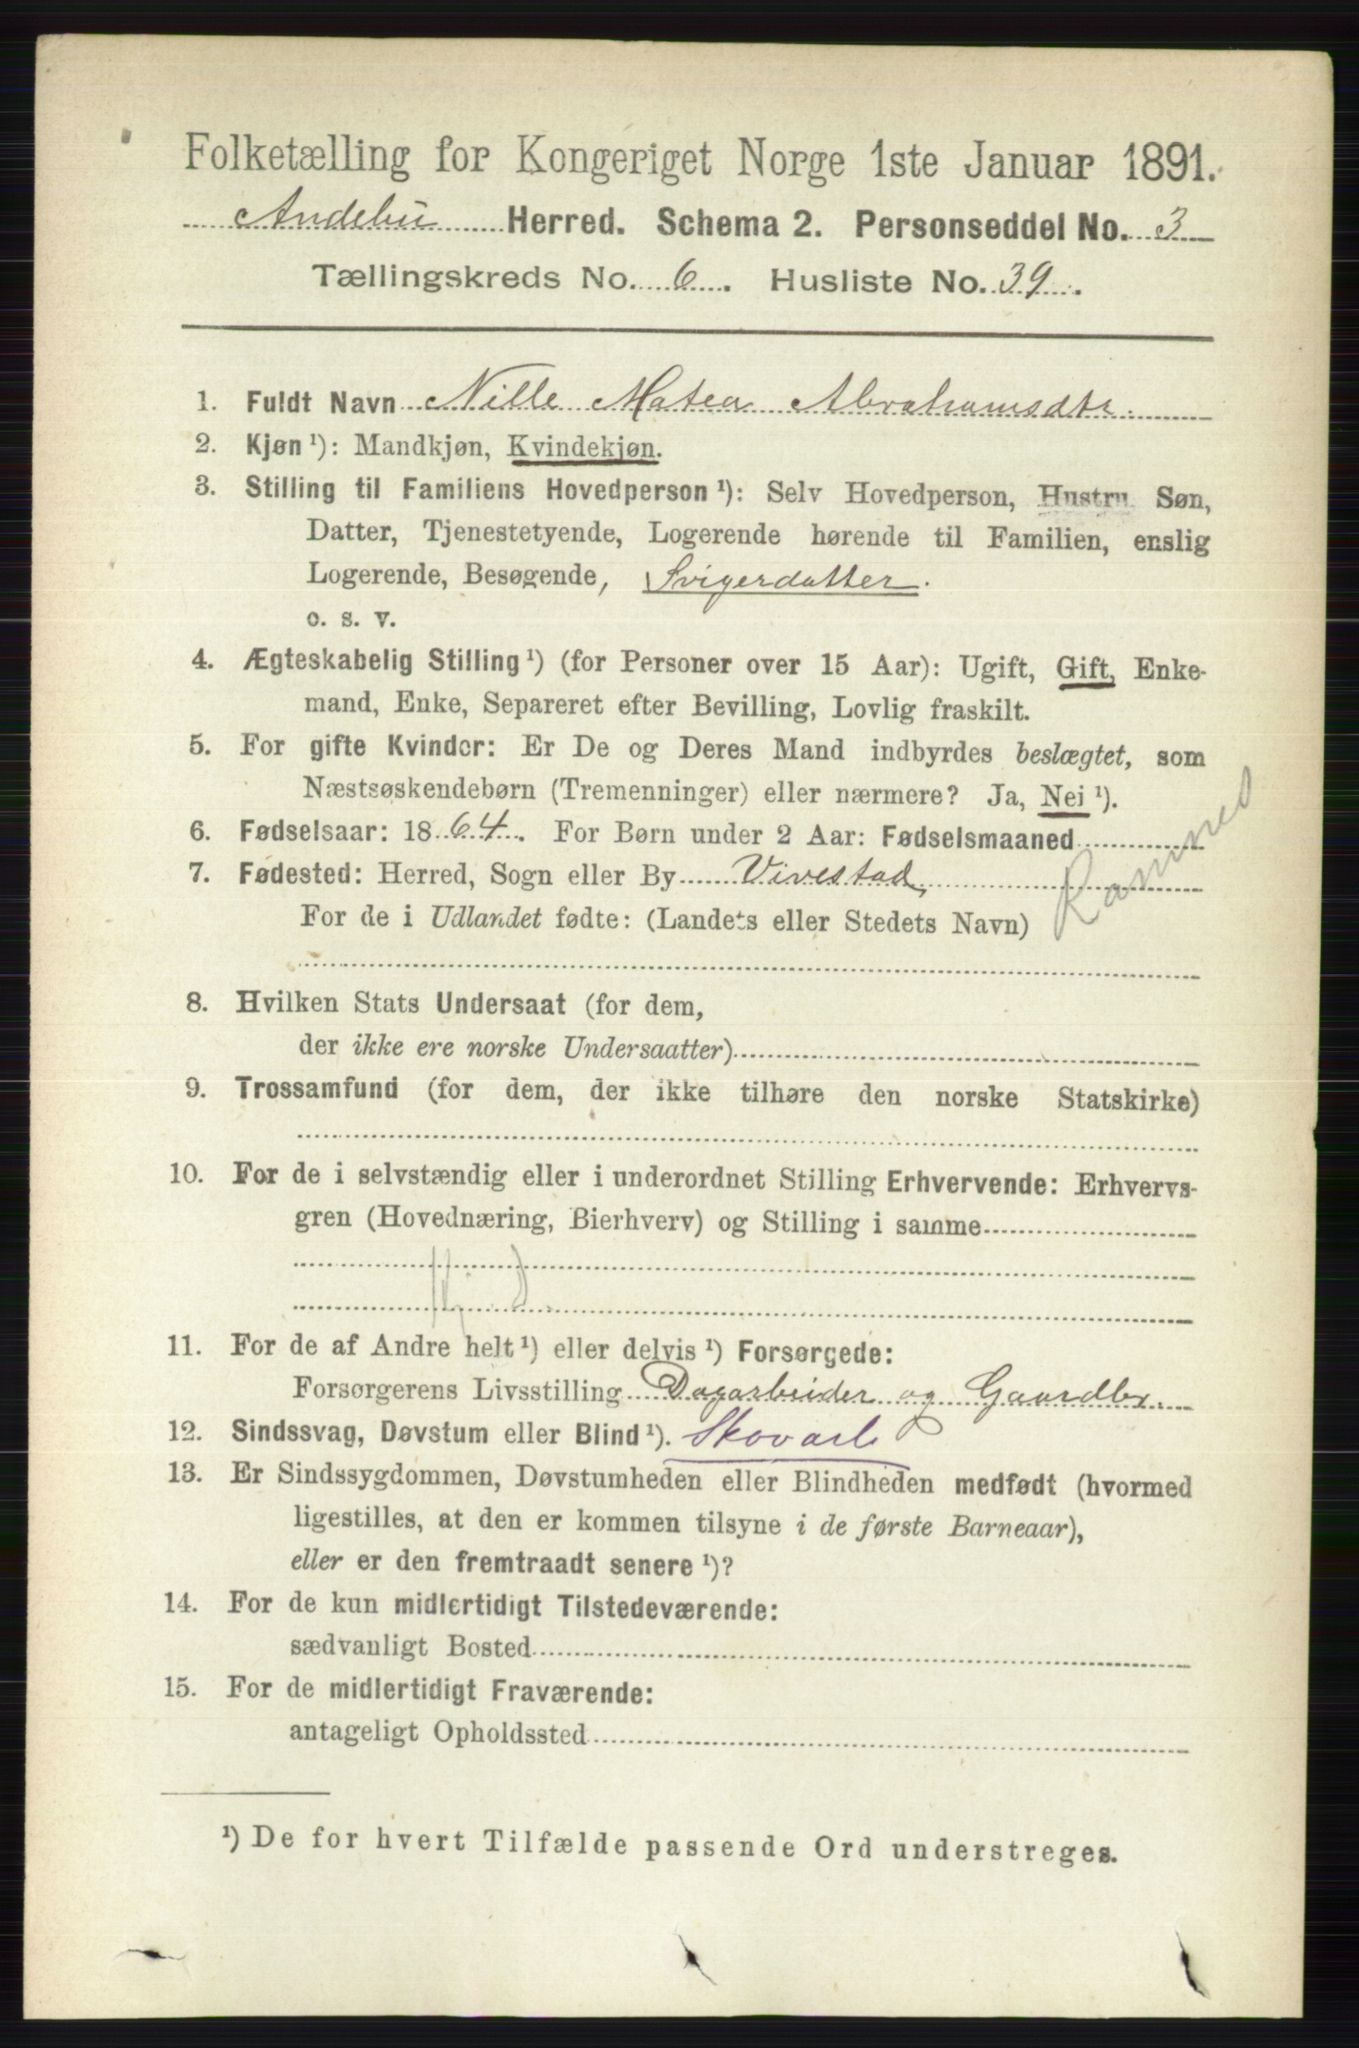 Folketælling for Kongeriget Norge 1ste Januar 1891.
Andebu Herred. Schema 2. Personseddel No. 3
Tællingskreds No. 6. Husliste No. 39.
1. Fuldt Navn Nille Matea Abrahamsdtr.
2. Kjøn ¹): Mandkjøn, Kvindekjøn.
3. Stilling til Familiens Hovedperson ¹): Selv Hovedperson, Hustru, Søn,
Datter, Tjenestetyende, Logerende hørende til Familien, enslig
Logerende, Besøgende, Svigerdatter.
o. s. v.
4. Ægteskabelig Stilling ¹) (for Personer over 15 Aar): Ugift, Gift, Enke-
mand, Enke, Separeret efter Bevilling, Lovlig fraskilt.
5. For gifte Kvinder: Er De og Deres Mand indbyrdes beslægtet, som
Næstsøskendebørn (Tremenninger) eller nærmere? Ja, Nei ¹).
6. Fødselsaar: 1864. For Børn under 2 Aar: Fødselsmaaned
7. Fødested: Herred, Sogn eller By Vivestad, Ramnes
For de i Udlandet fødte: (Landets eller Stedets Navn)
8. Hvilken Stats Undersaat (for dem,
der ikke ere norske Undersaatter)
9. Trossamfund (for dem, der ikke tilhøre den norske Statskirke)
10. For de i selvstændig eller i underordnet Stilling Erhvervende: Erhvervs-
gren (Hovednæring, Bierhverv) og Stilling i samme
11. For de af Andre helt ¹) eller delvis ¹) Forsørgede:
Forsørgerens Livsstilling Dagarbeider og Gaardbr.
12. Sindssvag, Døvstum eller Blind ¹). Skovarb
13. Er Sindssygdommen, Døvstumheden eller Blindheden medfødt (hvormed
ligestilles, at den er kommen tilsyne i de første Barneaar),
eller er den fremtraadt senere ¹)?
14. For de kun midlertidigt Tilstedeværende:
sædvanligt Bosted
15. For de midlertidigt Fraværende:
antageligt Opholdssted
¹) De for hvert Tilfælde passende Ord understreges.